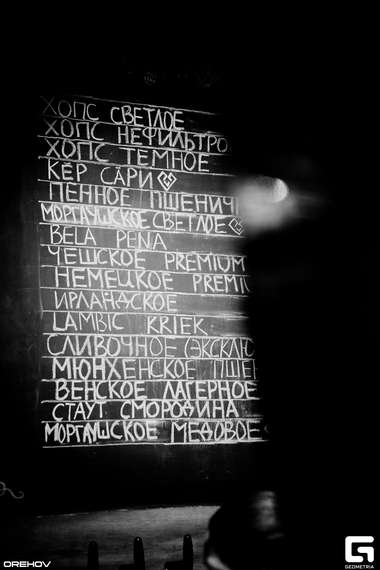 ХОПС СВЕТЛОЕ
ХОПС НЕФИЛЬТРО
ХОПС ТЕМНОЕ
КЁР САРИ
ПЕННОЕ ПШЕНИЧ
МОРГАУШСКОЕ СВЕТЛОЕ
BELA PENA
ЧЕШСКОЕ PREMIUM
НЕМЕЦКОЕ PREMI
ИРЛАНДСКОЕ
LAMBIC KRIEK
СЛИВОЧНОЕ (ЭКСКЛЮ
МЮНХЕНСКОЕ ПШЕ
ВЕНСКОЕ ЛАГЕРНОЕ
СТАУТ СМОРОДИНА
МОРГАУШСКОЕ МЕДОВОЕ
OREHOV
GEOMETRIA